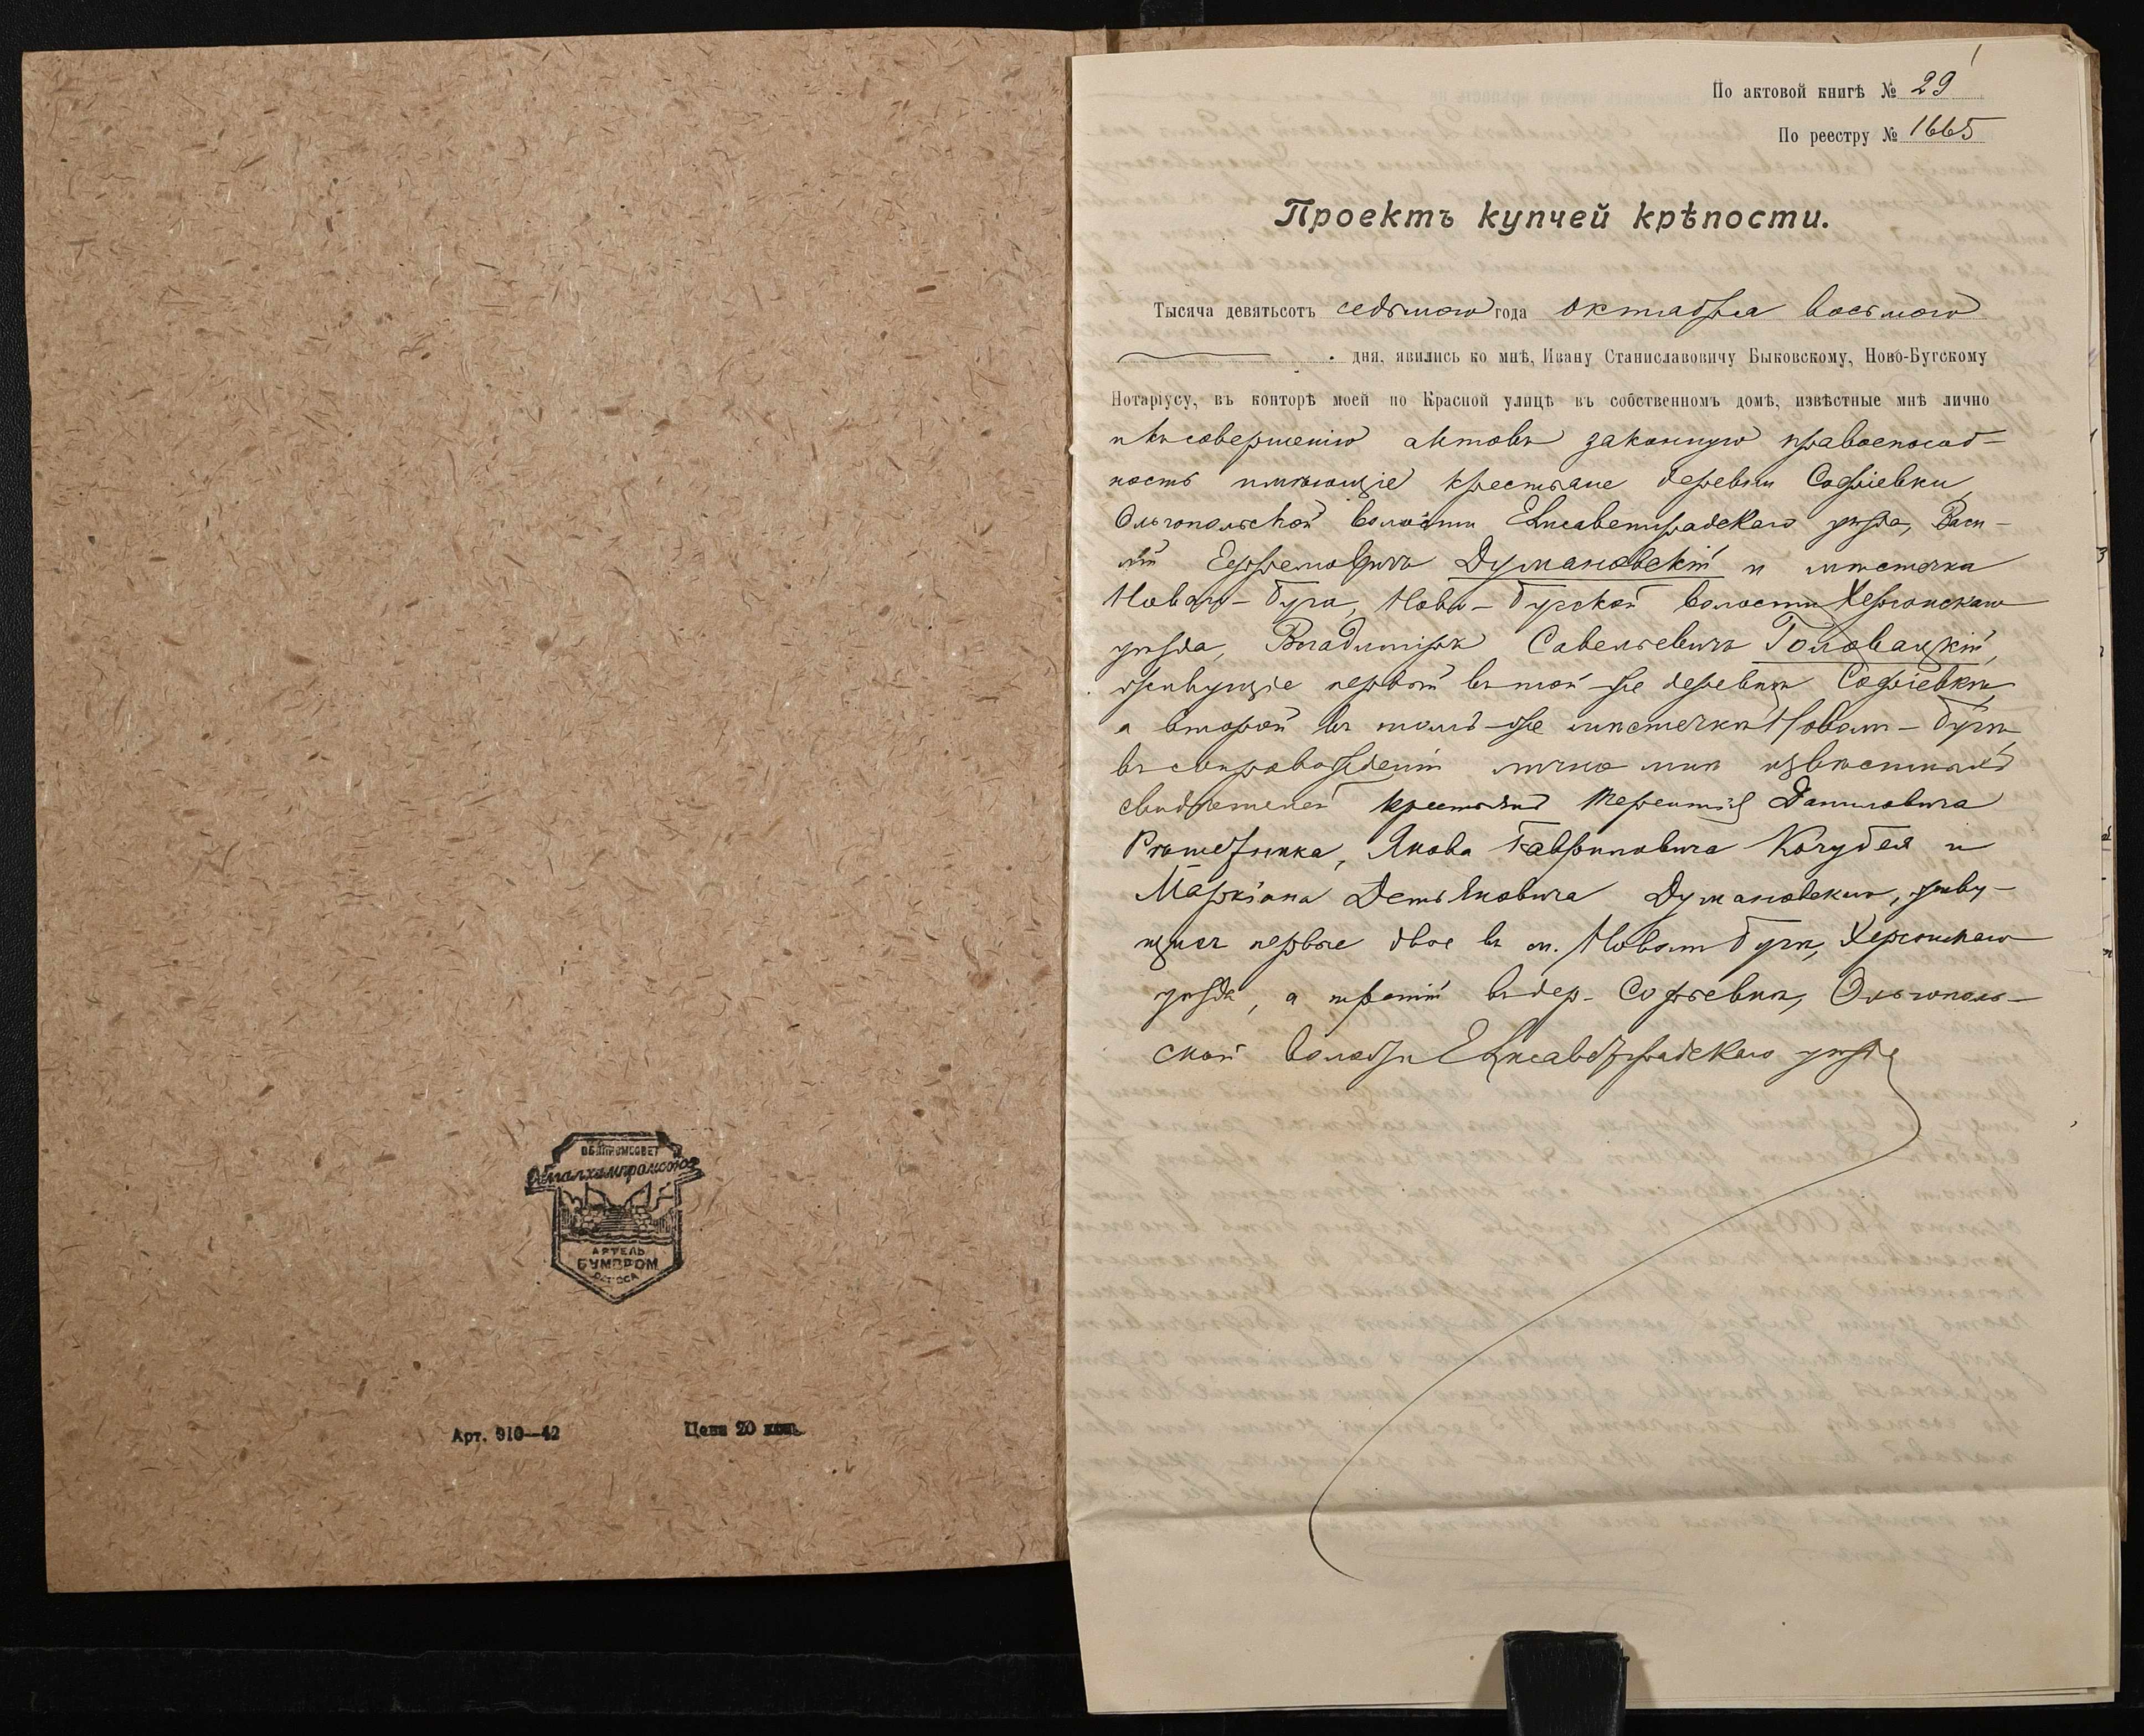 ОБЛПРОМСОВЕТ
АРТЕЛЬ
БУМПРОМ
ОДЕССА
Арт. 910—42 Цена 20 коп.
По актовой книгѣ № 29
По реестру № 1665
Проектъ купчей крѣпости.
Тысяча девятьсотъ седьмого года октября восьмого
дня, явились ко мнѣ, Ивану Станиславовичу Быковскому, Ново-Бугскому
Нотаріусу, въ конторѣ моей по Красной улицѣ въ собственномъ домѣ, извѣстные мнѣ лично
и къ совершенію актовъ законную правоспособ-
ность имѣющіе крестьяне деревни Софіевки,
Ольгопольской волости Елисаветградскаго уѣзда, Васи-
лій Ефремовичъ Думановскій и мѣстечка
Новаго-Буга, Ново-Бугской волости Херсонскаго
уѣзда, Владиміръ Савельевичъ Головацкій,
живущіе первый въ той-же деревнѣ Софіевкѣ,
а второй въ томъ-же мѣстечкѣ Новомъ-Бугѣ,
въ сопровожденіи лично мнѣ извѣстныхъ
свидѣтелей крестьянъ Терентія Даниловича
Рѣшетника, Якова Гавриловича Кочубея и
Маркіана Демьяновича Думановскаго, живу-
щихъ первые двое въ м. Новомъ Бугѣ, Херсонскаго
уѣзда, а третій въ дер. Софьевкѣ, Ольгополь-
ской волости Елисаветградскаго уѣзда